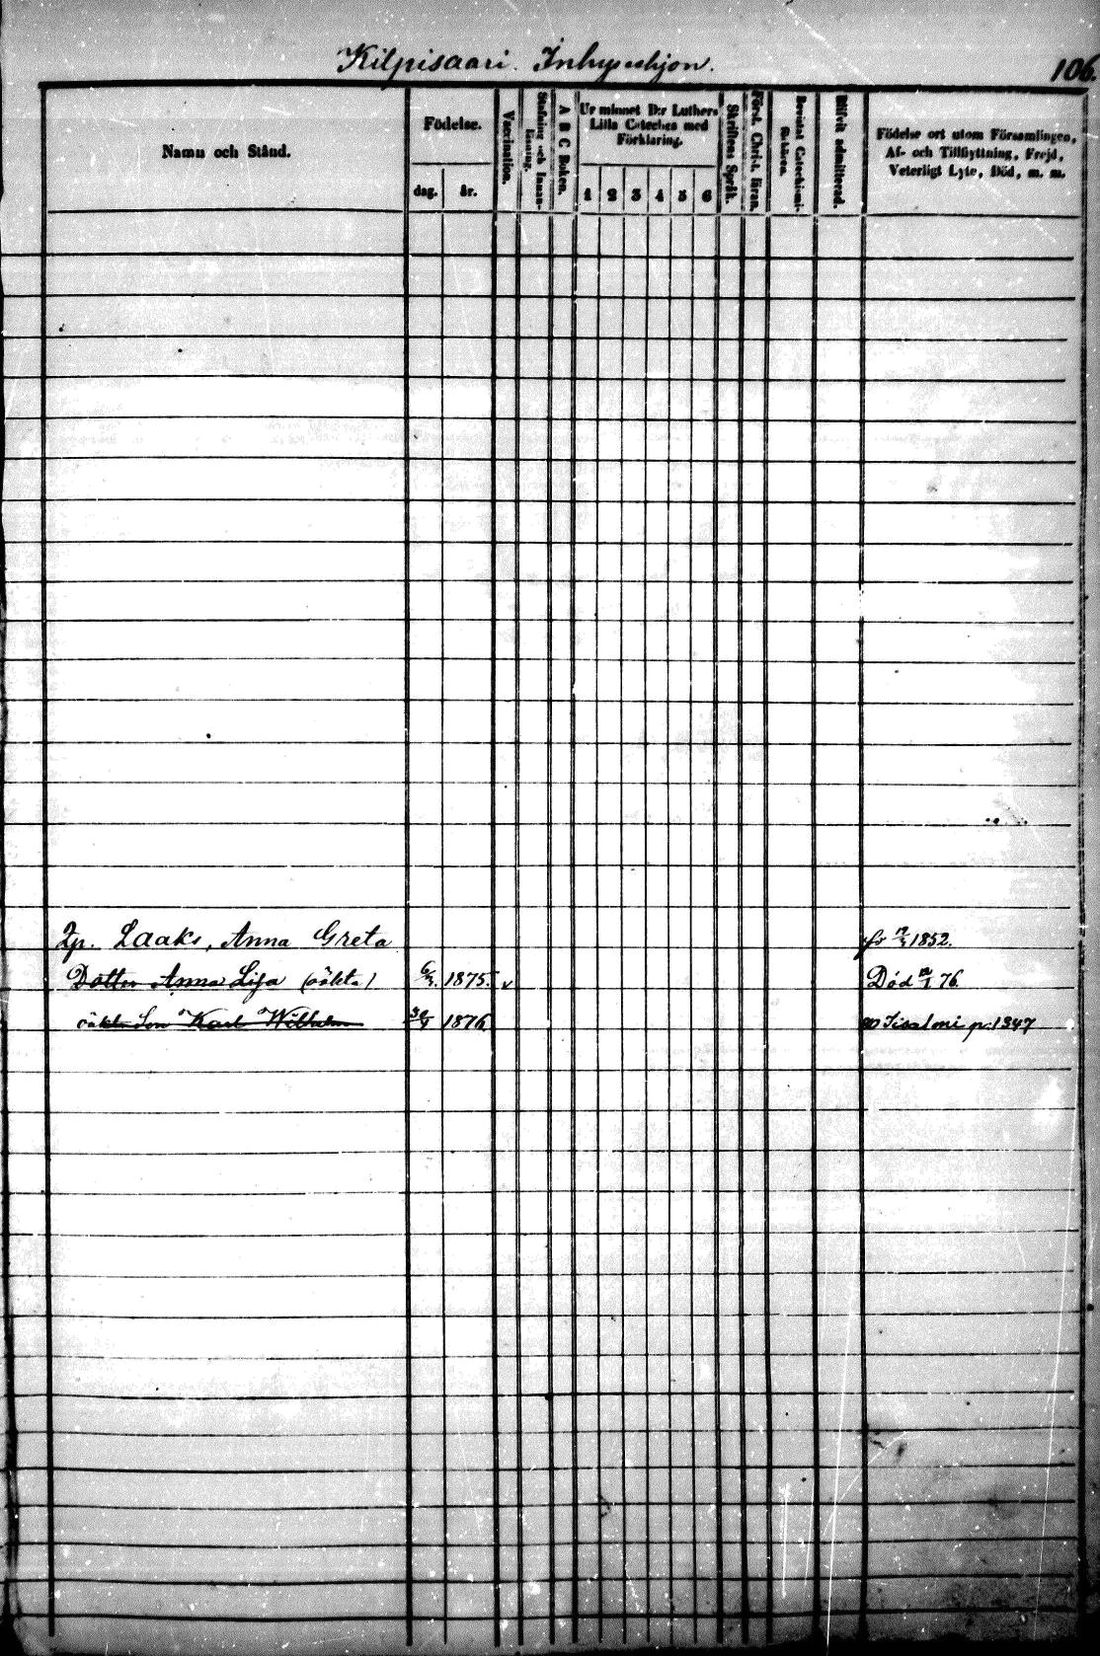 Kilpisaari. Inhyseshjon.
106.
Namn och Stånd.
Födelse.
dag.
år.
Vaccination.
Stafning och Innan-läsning.
A B C Boken.
Ur minnet D:r Luthers Lilla Cateches med Förklaring.
1 2 3 4 5 6
Skriftens Språk.
Förd. Christ. läran.
Bevistat Catechismi-förhören.
Blifvit admitterad.
Födelse ort utom Församlingen,
Af- och Tillflyttning, Frejd,
Veterligt Lyte, Död, m. m.
Laaks, Anna Greta 1852.
Dotter Anna Lisa (oäkta) 1875. Död 76.
oäkta Son Karl Wilhelm 1876 Iisalmi p. 1347